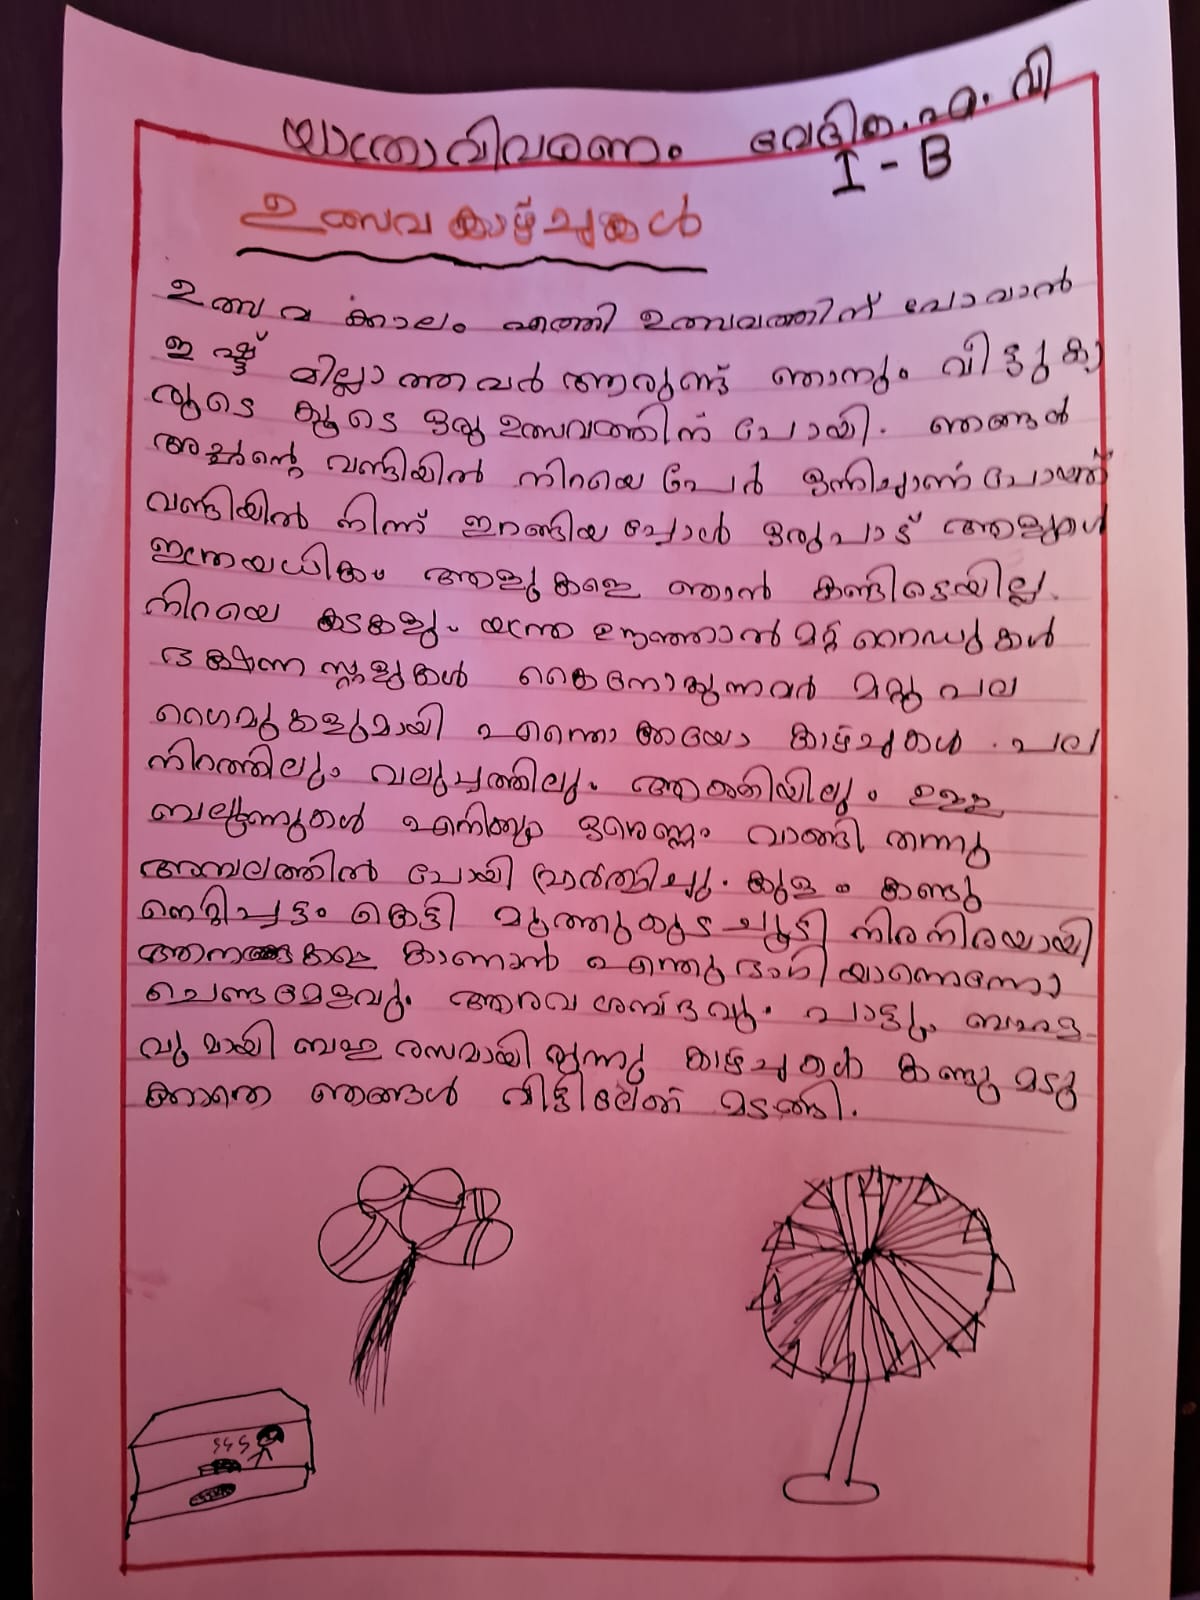 യാത്രാവിവരണം വേദിക.എ.വി
I - B
ഉത്സവകാഴ്ചകൾ
ഉത്സവ കാലം എത്തി ഉത്സവത്തിന് പോവാൻ
ഇഷ്ട്ട് മില്ലാത്തവർ ആരുണ്ട് ഞാനും വീട്ടുകാ
രുടെ കൂടെ ഒരു ഉത്സവത്തിന് പോയി. ഞങ്ങൾ
അച്ഛന്റെ വണ്ടിയിൽ നിറയെ പേർ ഒന്നിച്ചാണ് പോയത്
വണ്ടിയിൽ നിന്ന് ഇറങ്ങിയപ്പോൾ ഒരുപാട് ആളുകൾ
ഇത്രേയധികം ആളുകളെ ഞാൻ കണ്ടിട്ടെയില്ല.
നിറയെ കടകളും യന്ത്ര ഊഞ്ഞാൽ മറ്റ് റൈഡുകൾ
ഭക്ഷണ സ്റ്റാളുകൾ കൈനോക്കുന്നവർ മറ്റു പല
ഗൈമുകളുമായി എന്തൊക്കയോ കാഴ്ചകൾ. പല
നിറത്തിലും വലുപ്പത്തിലും ആകൃതിയിലും ഉള്ള
ബലൂണുകൾ എനിക്കും ഒരെണ്ണം വാങ്ങി തന്നു
അമ്പലത്തിൽ പോയി പ്രാർത്ഥിച്ചു. കുളം കണ്ടു
നെറ്റിപ്പട്ടം കെട്ടി മുത്തുകുട ചൂടി നിരനിരയായി
ആനകളെ കാണാൻ എന്തു ഭംഗിയാണെന്നോ
ചെണ്ടമേളവും ആരവ ശബ്ദവും പാട്ടും ബഹള
വുമായി ബഹു രസമായിരുന്നു കാഴ്ചകൾ കണ്ടു മടു
ക്കാതെ ഞങ്ങൾ വീട്ടിലേക്ക് മടങ്ങി.